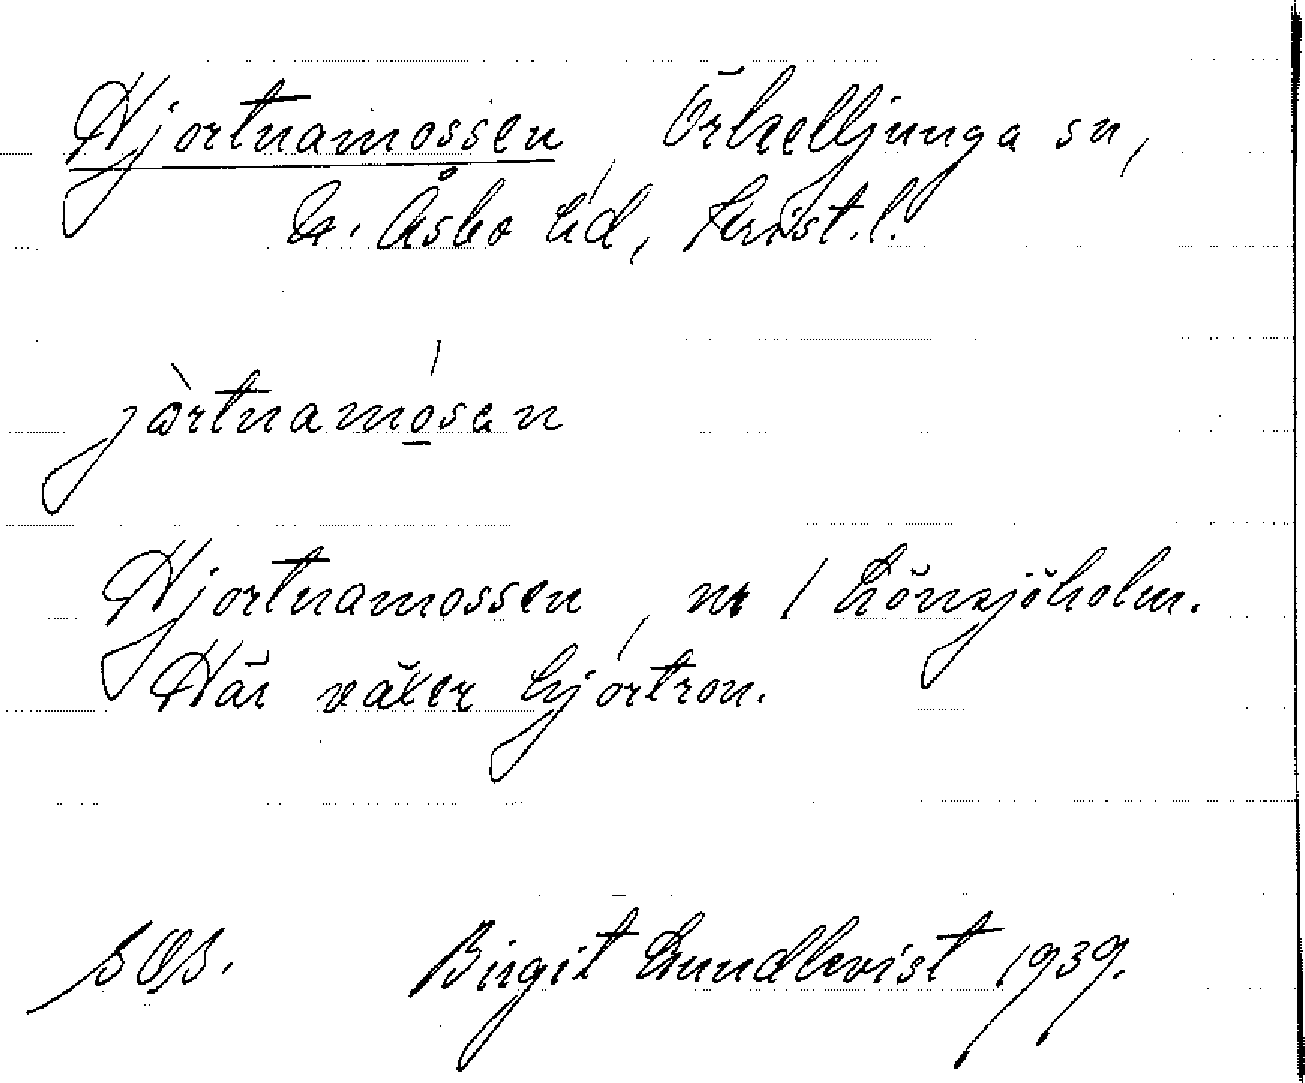 Hjortnamossen, Örkelljunga sn,
N. Åsbo hd, Krist.l.
jòrtnamósan
Hjortnamossen, nr 1 Lönsjöholm.
Här växer hjortron.
Birgit Lundkvist 1939.